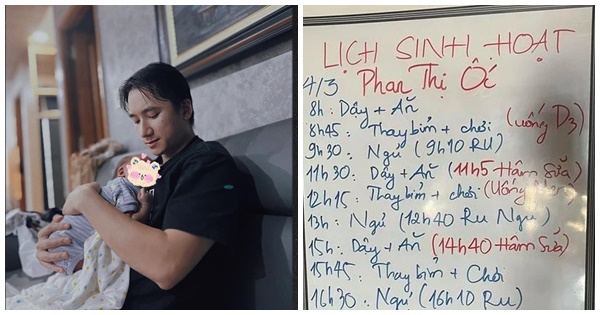 LỊCH SINH HOẠT
4/3 Phan Thị Ốc
8h: Dậy + Ăn
8h45: Thay bỉm + chơi (uống D3)
9h30: Ngủ (9h10 RU)
11h30: Dậy + Ăn (11h5 Hâm Sữa)
12h15: Thay bỉm + chơi (Uống
13h: Ngủ (12h40 Ru Ngủ)
15h: Dậy + Ăn (14h40 Hâm Sữa)
15h45: Thay bỉm + Chơi
16h30: Ngủ (16h10 RU)